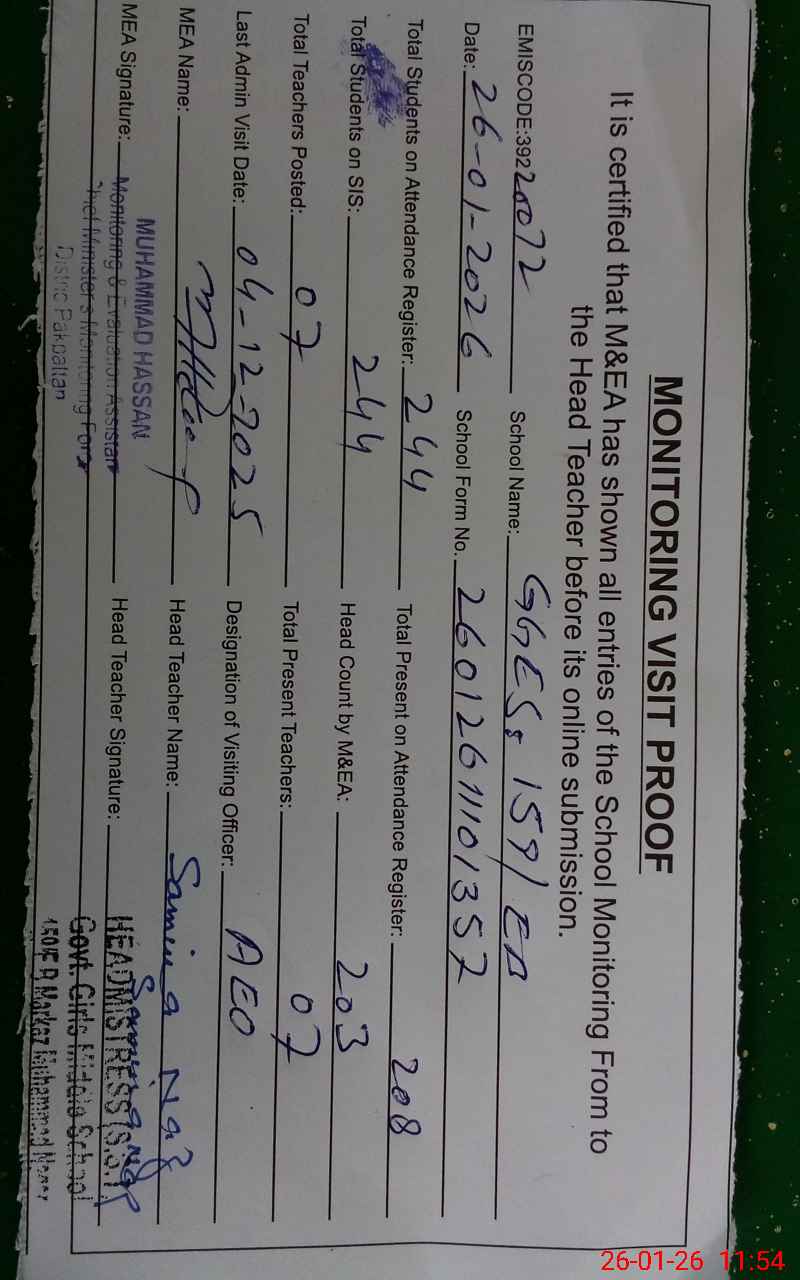 MONITORING VISIT PROOF
It is certified that M&EA has shown all entries of the School Monitoring From to
the Head Teacher before its online submission.
EMISCODE:39220072 School Name: GGES. 159/EB
Date: 26-01-2026 School Form No. 26012611101357
Total Students on Attendance Register: 244 Total Present on Attendance Register: 208
Total Students on SIS: 244 Head Count by M&EA: 203
Total Teachers Posted: 07 Total Present Teachers: 07
Last Admin Visit Date: 04-12-2025 Designation of Visiting Officer: AEO
MEA Name: Head Teacher Name: Samina Naz
MEA Signature: Head Teacher Signature:
MUHAMMAD HASSAN
Monitoring & Evaluation Assistant
Chief Minister's Monitoring Force
District Pakpattan
HEADMISTRESS
Govt. Girls Middle School
Markaz Muhammad
26-01-26 11:54